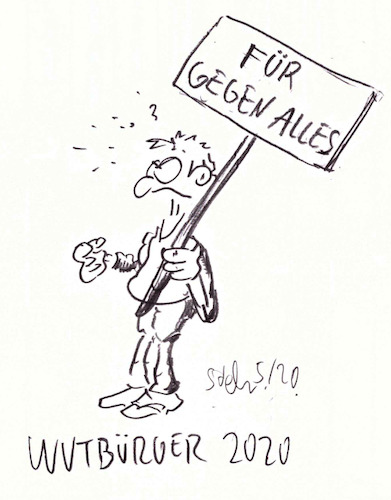 ?
FÜR
GEGEN ALLES
5/20
WUTBÜRGER 2020